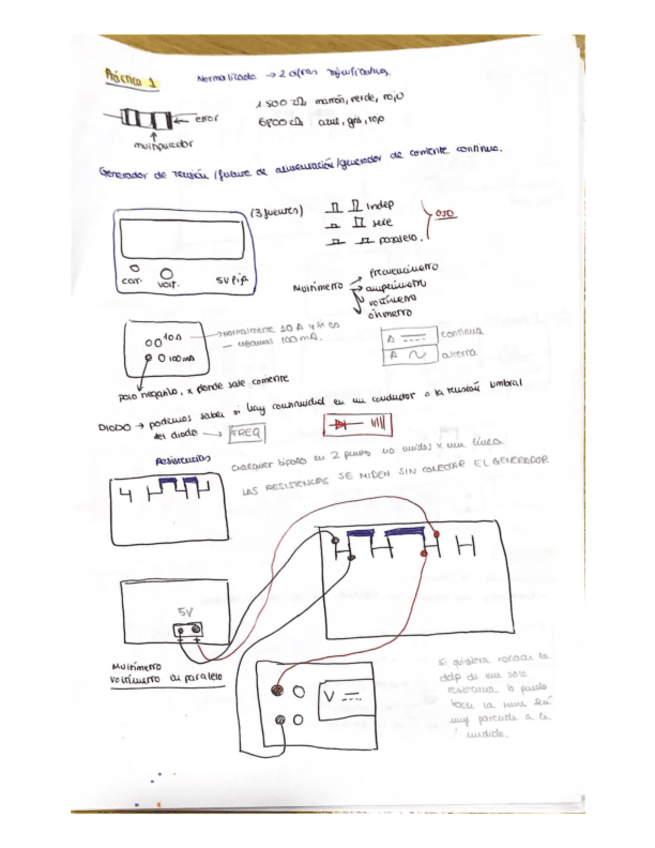 Práctica 1
Normalizada → 2 cifras significativas
1.500 Ω marrón, verde, rojo
error
6800 Ω azul, gris, rojo
multiplicador
Generador de tensión / fuente de alimentación / generador de corriente continua.
(3 fuentes)
Indep
serie
paralelo.
OJO
corr.
volt.
5V fija
Multímetro
frecuencímetro
amperímetro
voltímetro
óhmetro
10A
100mA
→ normalmente 10 A y si es
100 mA.
A
continua
A
alterna
polo negativo, x donde sale corriente
DIODO → podemos saber si hay continuidad en un conductor o la tensión umbral
del diodo →
FREQ
Resistencias
cualquier bipolo en 2 puntos no unidos x una línea
LAS RESISTENCIAS SE MIDEN SIN CONECTAR EL GENERADOR
5V
Multímetro
Voltímetro en paralelo
V
si quisiera conocer la
ddp de una sola
resistencia lo puedo
hacer
muy parecida a la
medida.